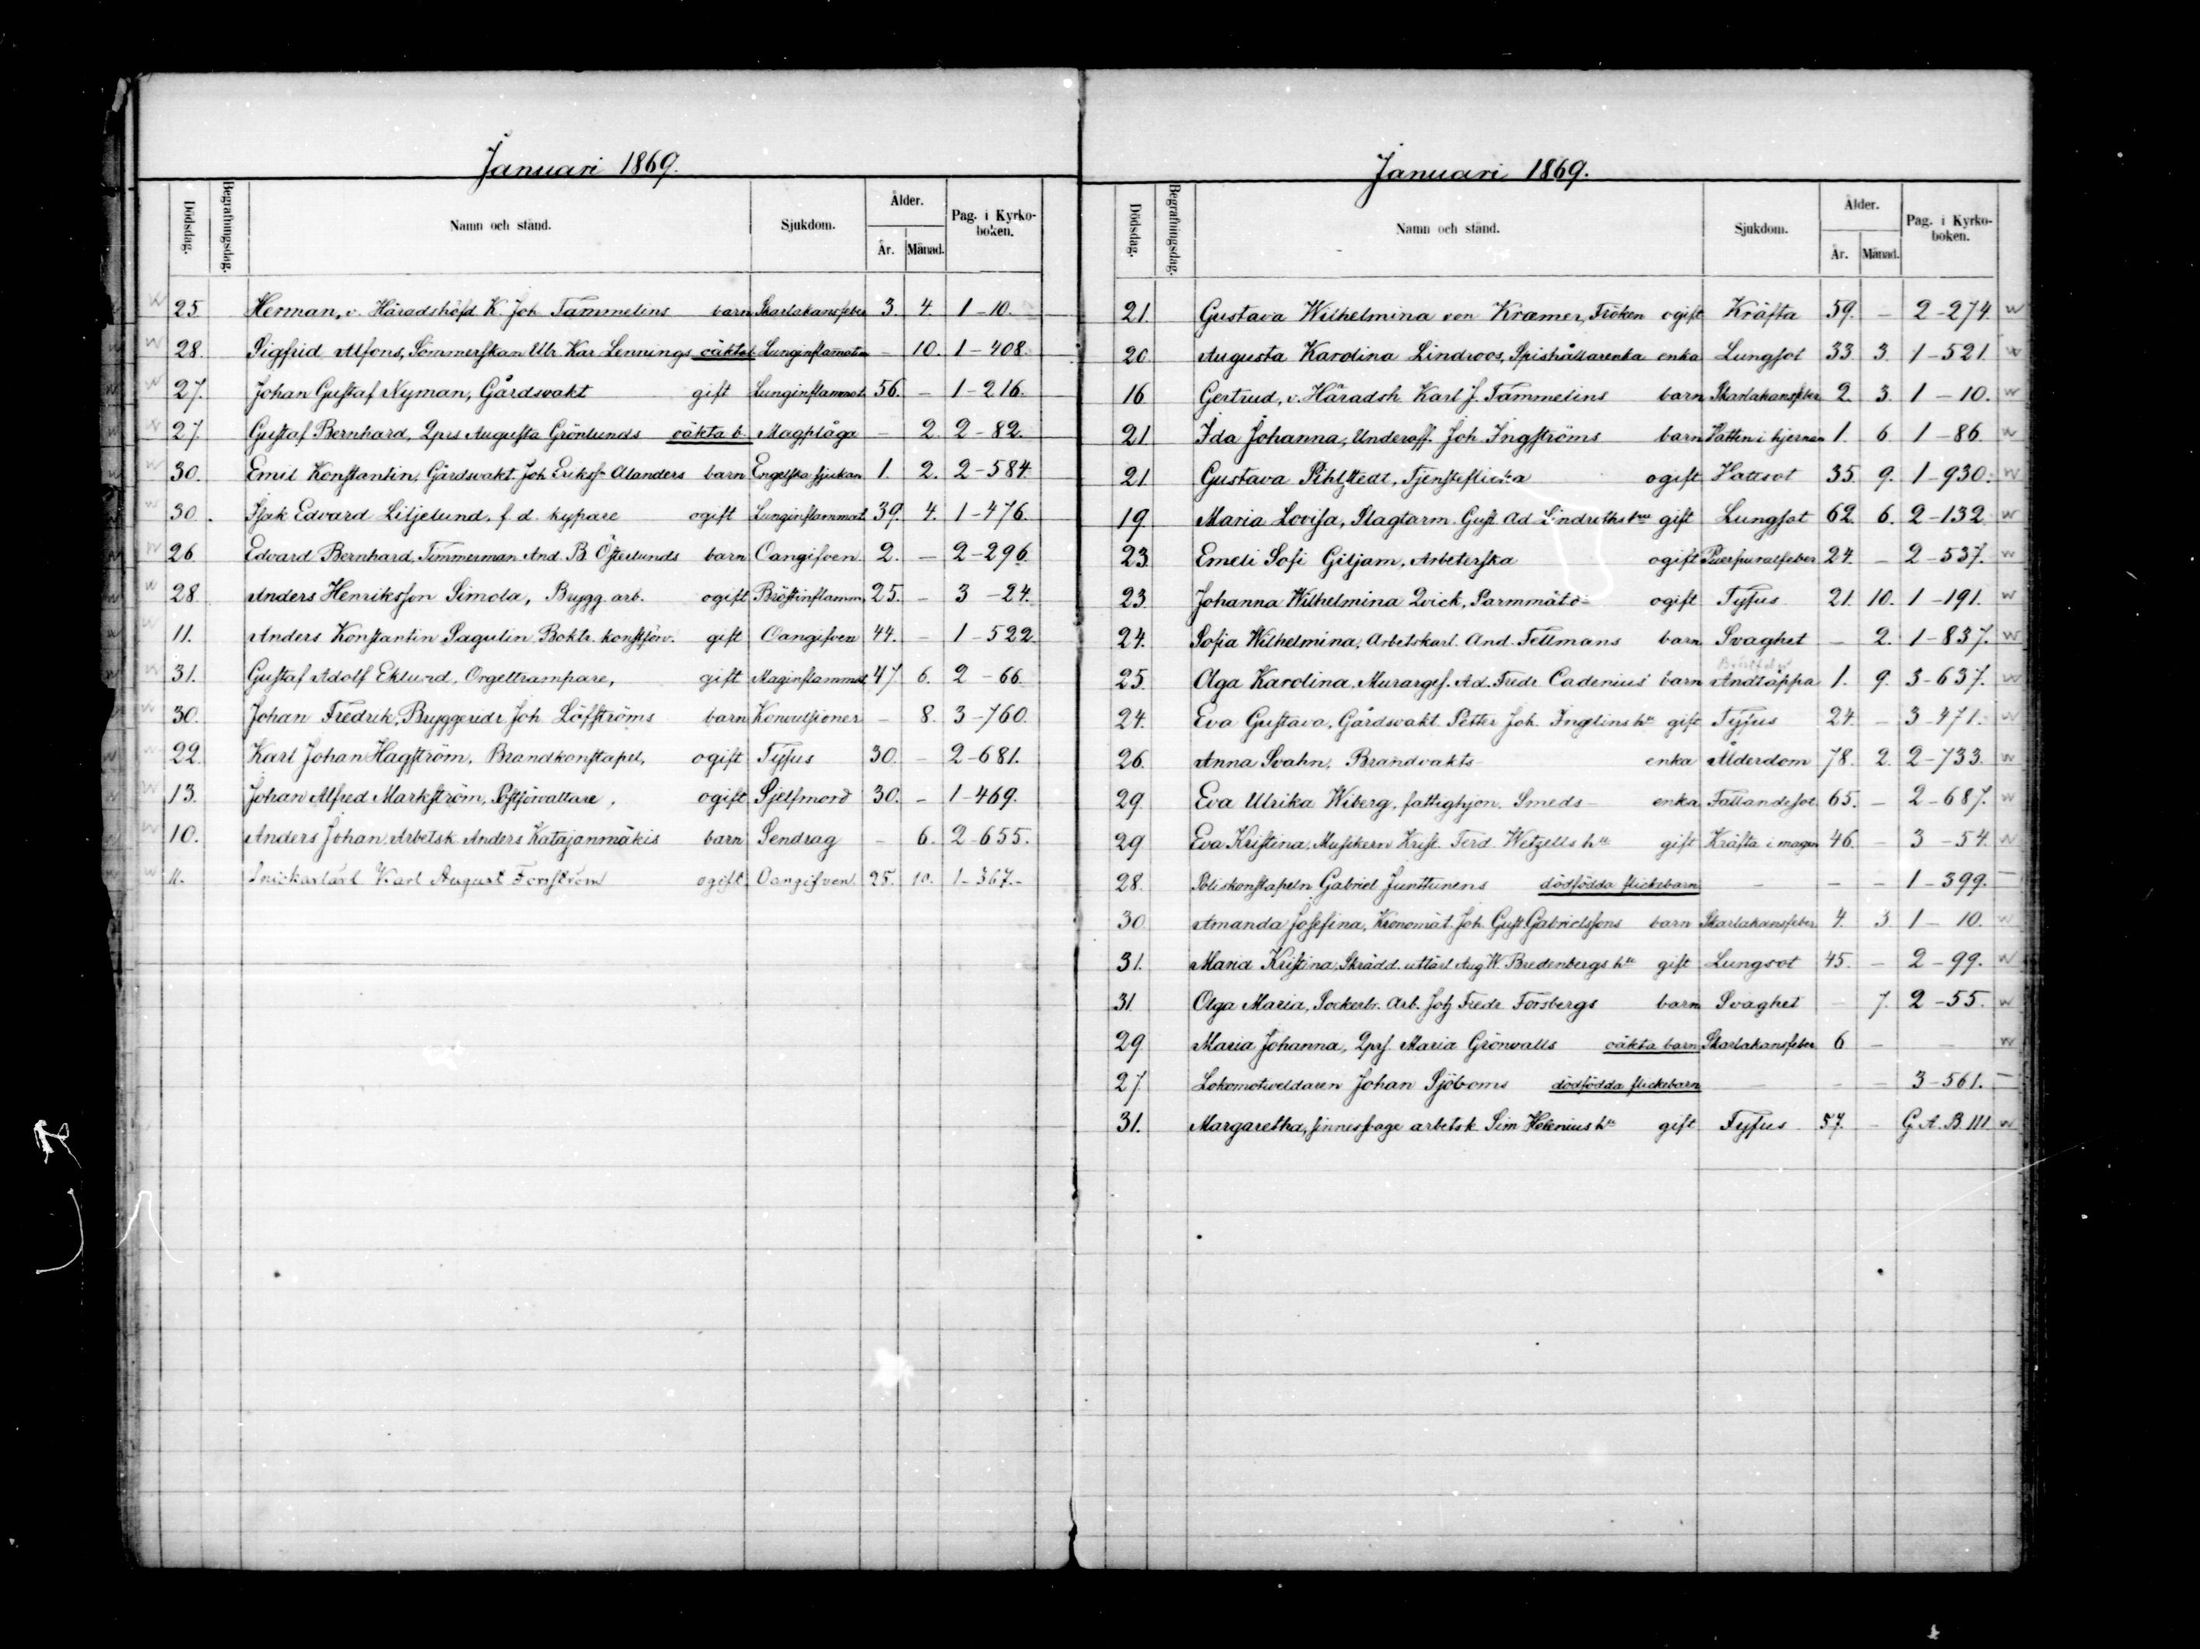 Januari 1869.
Dödsdag. Begrafningsdag. Namn och stånd. Sjukdom. Ålder. År. Månad. Pag. i Kyrko-boken.
25. Herman, v. Häradshöfd K. Joh Tammelins barn Skarlakansfeber 3. 4. 1-10.
28. Sigfrid Alfons, Sömmerskan Ulr. Kar Lennings oäkta b Lunginflamation - 10. 1-408.
27. Johan Gustaf Nyman, Gårdsvakt gift Lunginflammat. 56. - 1-216.
27. Gustaf Bernhard, Qprs Augusta Grönlunds oäkta b. Magplåga - 2. 2-82.
30. Emil Konstantin, Gårdsvakt. Joh Erikss Alanders barn Engelska sjukan 1. 2. 2-584.
30. Isak Edvard Liljelund, f. d. kypare ogift Lunginflammat. 39. 4. 1-476.
26. Edvard Bernhard, Timmerman And. B. Österlunds barn Oangifven. 2. - 2-296.
28. Anders Henriksson Simola, Brygg. arb. ogift Bröstinflamm. 25. - 3-24.
11. Anders Konstantin Sagulin, Boktr. konstförv. gift Oangifven 44. - 1-522
31. Gustaf Adolf Eklund, Orgeltrampare, gift Maginflammat 47 6. 2-66
30. Johan Fredrik, Bryggeridr Joh. Löfströms barn Konvulsioner - 8. 3-760.
22. Karl Johan Hagström, Brandkonstapel, ogift Tyfus 30. - 2-681.
13. Johan Alfred Markström, Postförvaltare, ogift Sjelfmord 30. - 1-469.
10. Anders Johan, Arbetsk. Anders Katajanmäkis barn Sendrag - 6. 2-655.
11. Snickarlärl Karl August Forsström ogift Oangifven. 25. 10. 1-367.-
Januari 1869.
Dödsdag. Begrafningsdag. Namn och stånd. Sjukdom. Ålder. År. Månad. Pag. i Kyrko-boken.
21. Gustava Wilhelmina von Kræmer, Fröken ogift Kräfta 59. - 2-274. w
20. Augusta Karolina Lindroos, Spishållarenka enka Lungsot 33. 3. 1-521. w
16 Gertrud, v. Häradsh. Karl J. Tammelins barn Skarlakansfeber 2. 3. 1-10. w
21 Ida Johanna, Underoff. Joh. Ingströms barn Vatten i hjernan 1. 6. 1-86 w
21 Gustava Pihlstedt, Tjensteflicka ogift Vattsot 35. 9. 1-930. w
19. Maria Lovisa, Slagtarm. Gust. Ad. Lindroths hu gift Lungsot 62. 6. 2-132 w
23. Emeli Sofi Giljam, Arbeterska ogift Puerperalfeber 24. - 2-537. w
23. Johanna Wilhelmina Qvick, Sarmmät.d- ogift Tyfus 21. 10. 1-191. w
24. Sofia Wilhelmina, Arbetskarl. And. Fellmans barn Svaghet - 2. 1-837. w
25. Olga Karolina, Murargef. Ad. Fredr Cadenius' barn Andtäppa 1. 9. 3-637. w
24. Eva Gustava, Gårdsvakt. Petter Joh. Ingelins hu gift Tyfus 24. - 3-471. w
26. Anna Svahn, Brandvakts enka Ålderdom 78. 2. 2-733. w
29. Eva Ulrika Wiberg, fattighjon, Smeds- enka Fallandesot 65. - 2-687. w
29 Eva Kristina, Musikern Krist. Ferd. Wetzells hu gift Kräfta i magen 46. - 3-54. w
28. Poliskonstapeln Gabriel Junttunens dödfödda flickebarn - - - 1-399. -
30. Amanda Josefina, Kronomät. Joh. Gust. Gabrielssons barn Skarlakansfeber 4. 3. 1-10. w
31. Maria Kristina, Skrädd. utlärl. Aug W. Bredenbergs hu gift Lungsot 45. - 2-99. w
31 Olga Maria, Sockerbr. Arb. Joh Fredr Forsbergs barn Svaghet - 7. 2-55. w
29. Maria Johanna, Qprs. Maria Grönvalls oäkta barn Skarlakansfeber 6 - - w
27 Lokomotiveldaren Johan Sjöboms dödfödda flickebarn - - - 3-561. -
31. Margaretha, finnesboge arbetsk. Sim. Helenius hu gift Tyfus 57. - G. A. B. III w